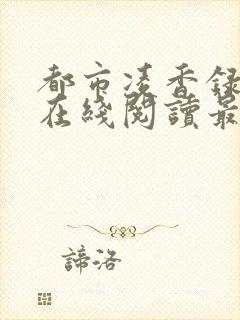 都市凌香錄
在綫閱讀最
諦洛